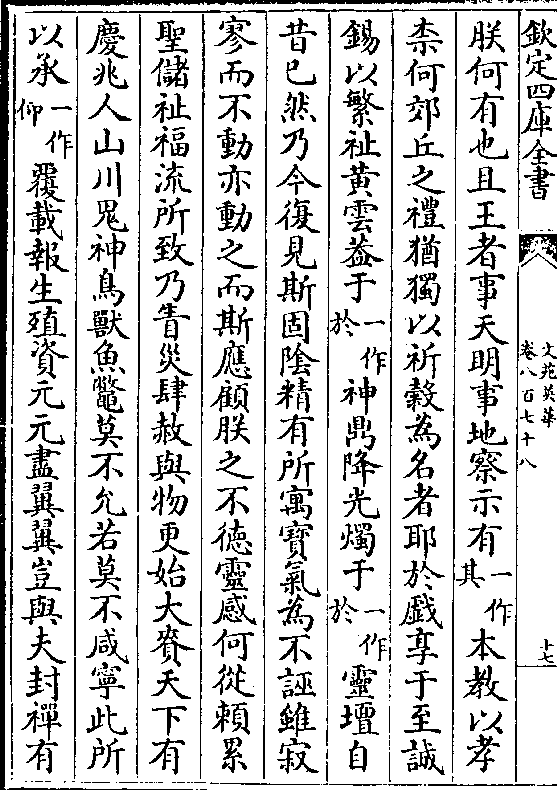 欽定四庫全書
文苑英華
卷八百七十八
十七
朕何有也且王者事天明事地察示有一作其本教以孝
柰何郊丘之禮猶獨以祈穀為名者耶於戲享于至誠
錫以繁祉黄雲葢于一作於神鼎降光燭于一作於靈壇自
昔已然乃今復見斯固陰精有所寓寶氣為不誣雖寂
寥而不動亦動之而斯應顧朕之不徳靈感何從頼累
聖儲祉福流所致乃眚災肆赦與物更始大賚天下有
慶兆人山川鬼神鳥獸魚鼈莫不允若莫不咸寧此所
以承一作仰覆載報生殖資元元盡翼翼豈與夫封禪有